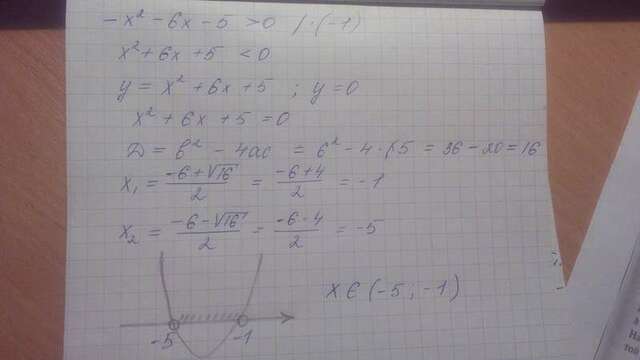 -x² - 6x - 5 > 0 / · (-1)
x² + 6x + 5 < 0
y = x² + 6x + 5 ; y = 0
x² + 6x + 5 = 0
D = b² - 4ac = 6² - 4 · 5 = 36 - 20 = 16
x₁ = (-6 + √16)/2 = (-6 + 4)/2 = -1
x₂ = (-6 - √16)/2 = (-6 - 4)/2 = -5
x ∈ (-5 ; -1)
-5 -1